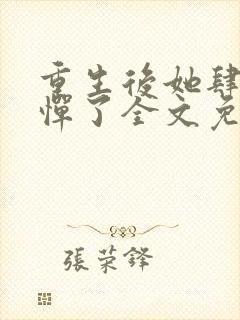 重生後她肆
憚了全文免
張荣鋒